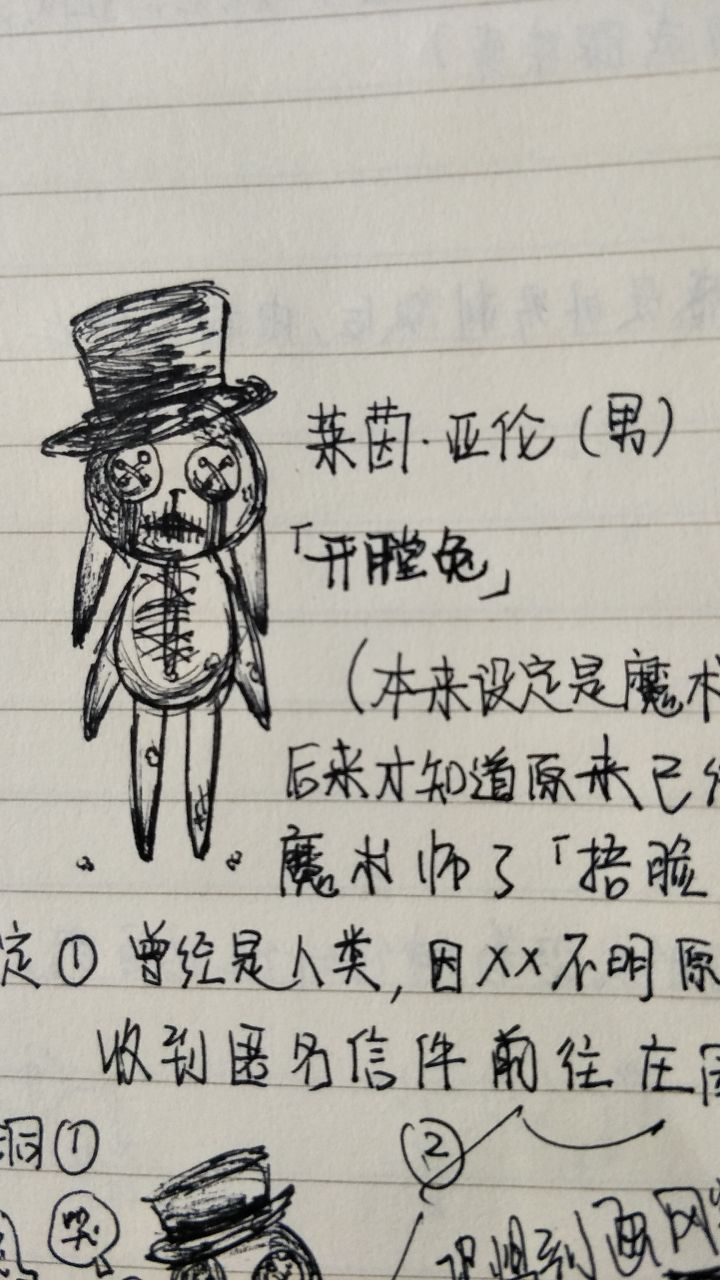 莱茵·亚伦（男）
「开膛兔」
（本来设定是魔术
后来才知道原来已
魔术师了「捂脸
定① 曾经是人类，因XX不明原
收到匿名信件前往庄园
洞①
②
哭
到画风